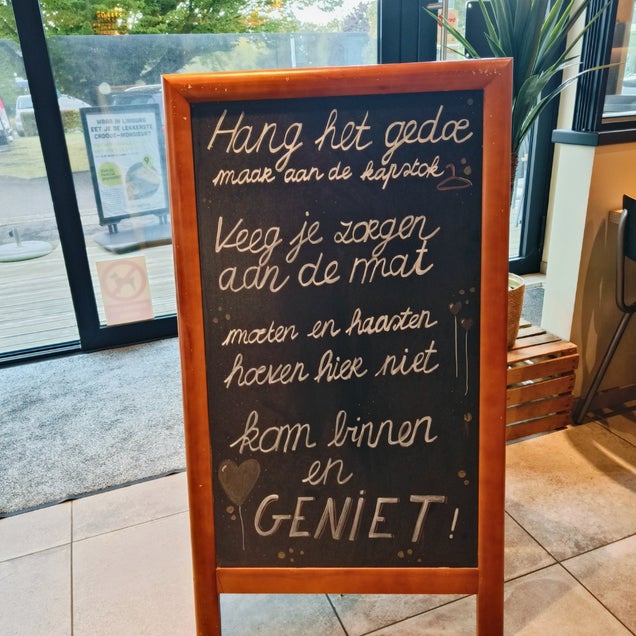 Hang het gedoe
maar aan de kapstok
Veeg je zorgen
aan de mat
moeten en haasten
hoeven hier niet
kom binnen
en
GENIET!
WAAR IN LIMBURG
EET JE DE LEKKERSTE
CROQUE-MONSIEUR?